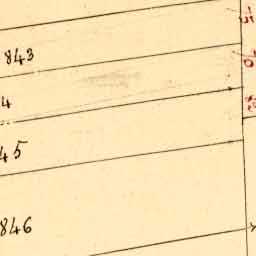 843
4
45
846